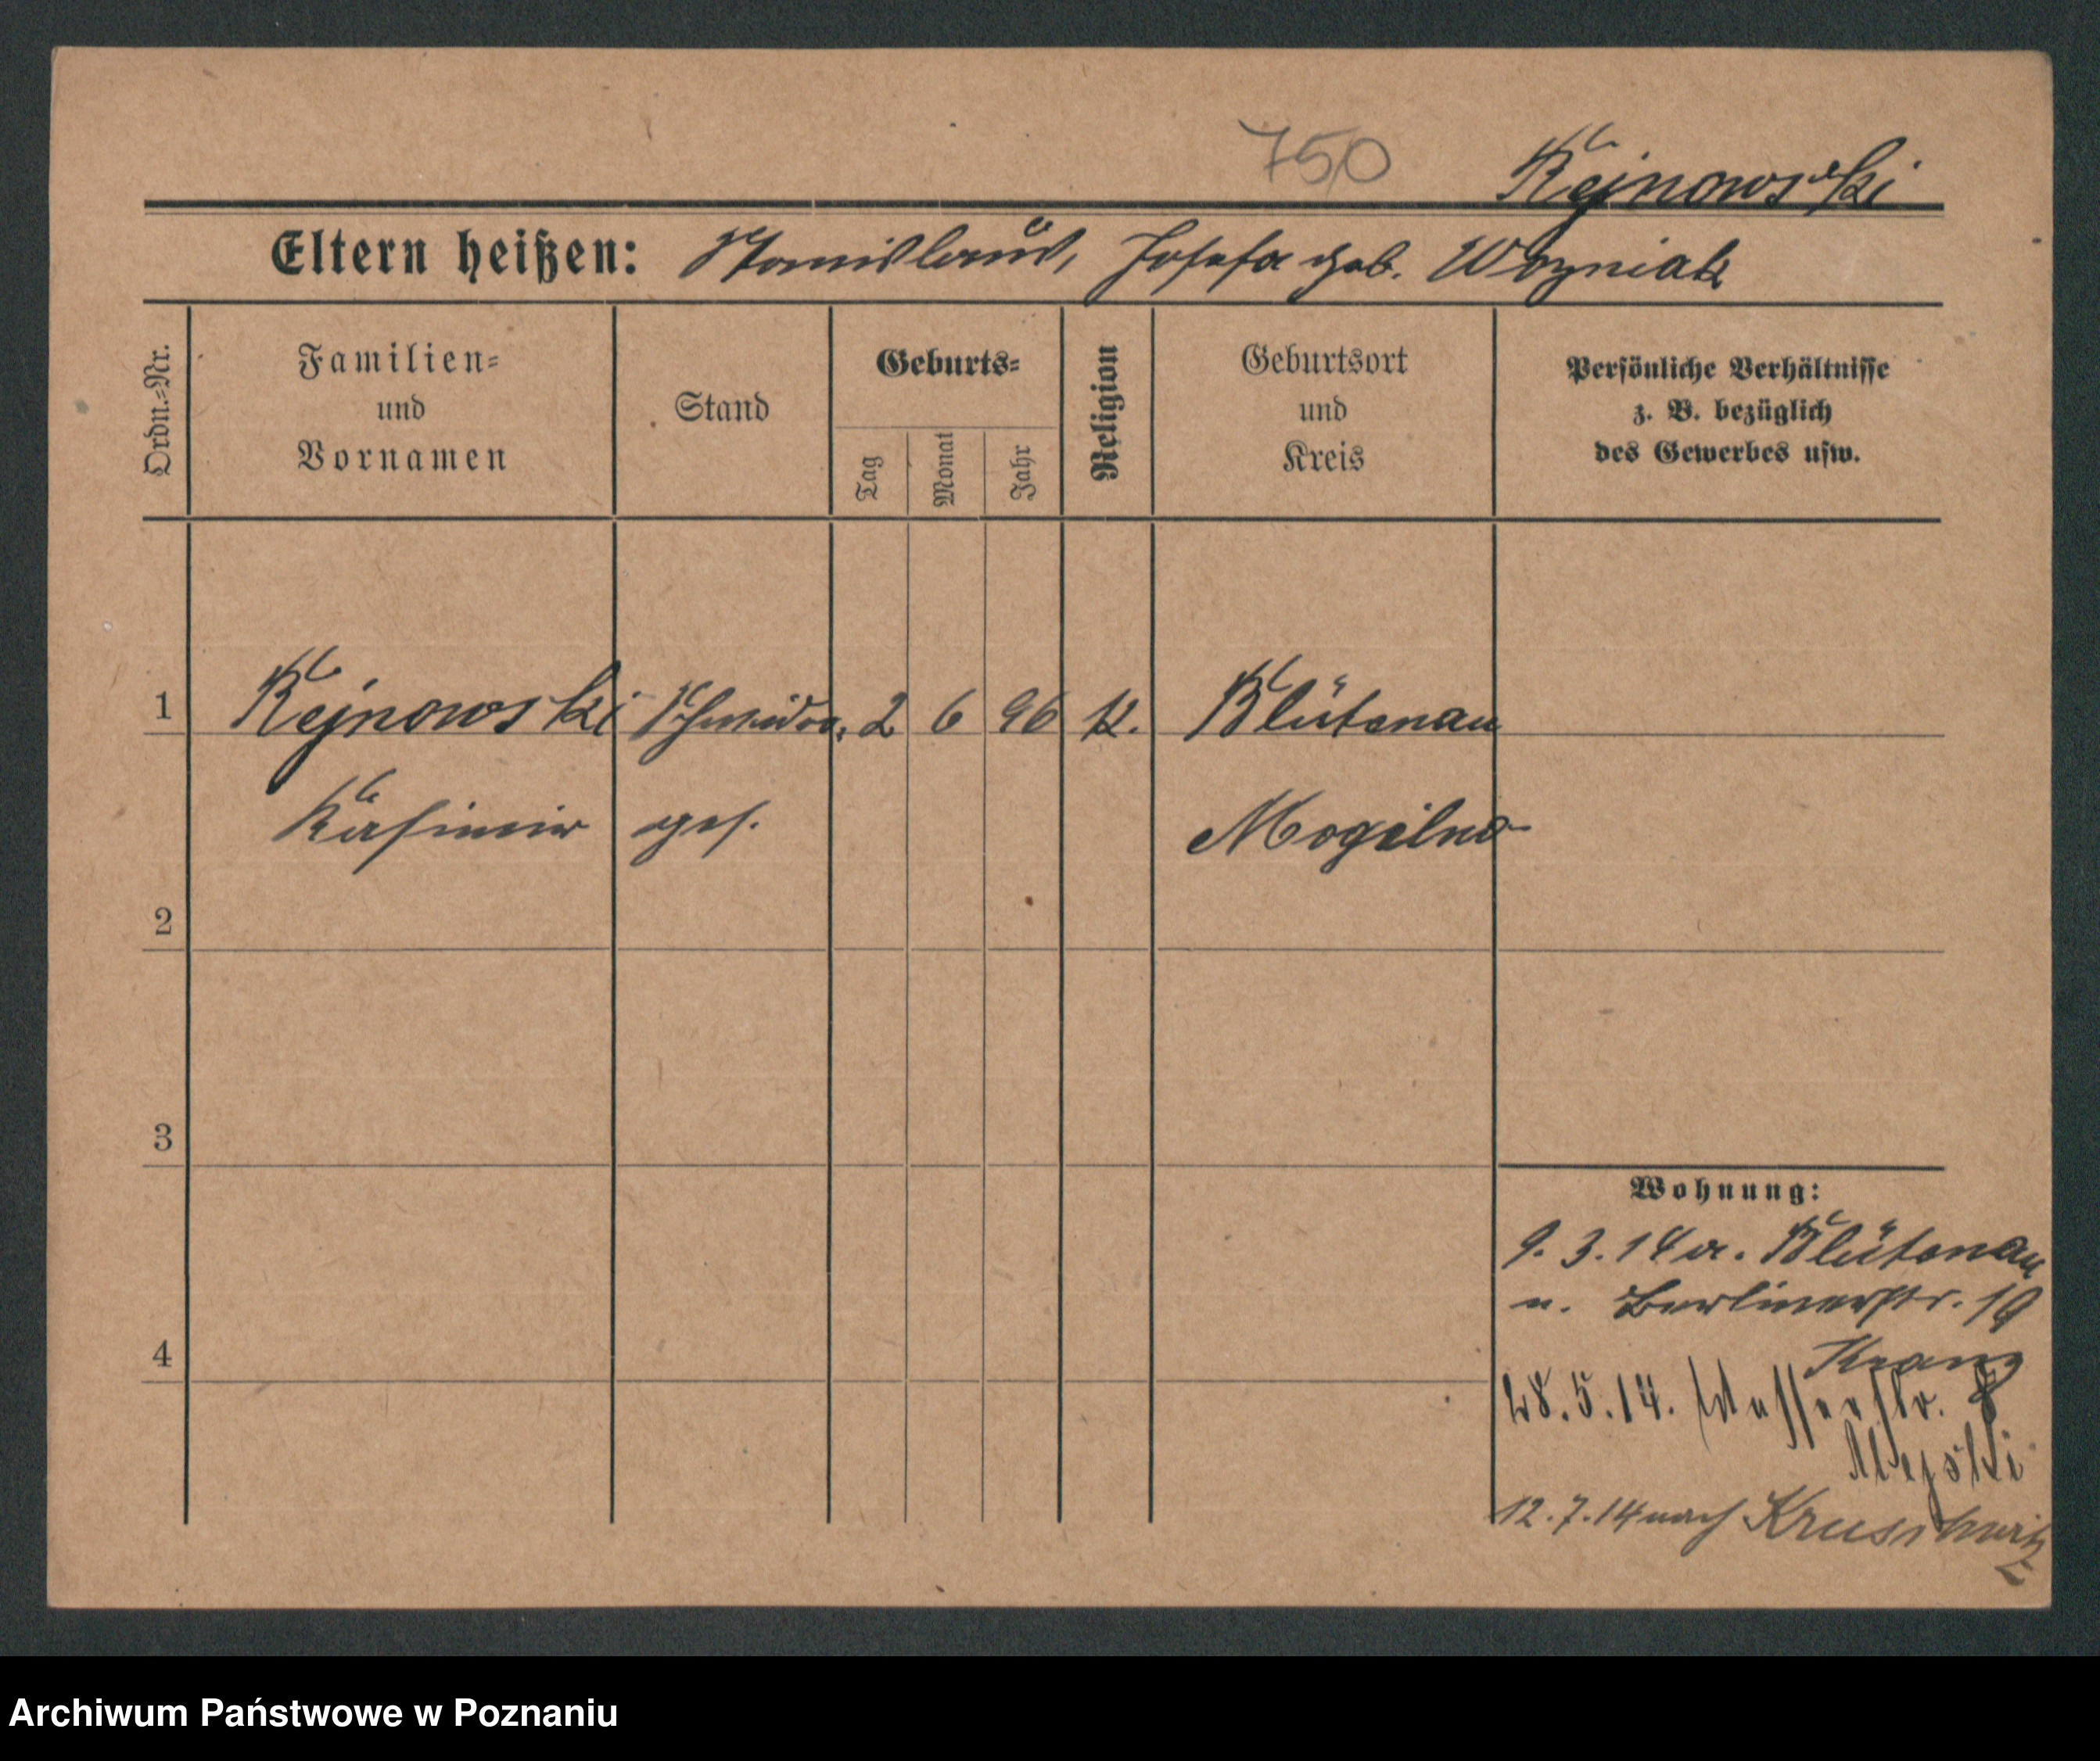 750 Rejnowski
Eltern heißen: Stanislaus, Josefa geb. Wozniak
Ordn.=Nr.
Familien=
und
Vornamen
Stand
Geburts=
Tag
Monat
Jahr
Religion
Geburtsort
und
Kreis
Persönliche Verhältnisse
z. B. bezüglich
des Gewerbes usw.
1 Rejnowski Schneider, 2 6 96 K. Blütenau
Kasimir ges. Mogilno
2
3
4
Wohnung:
9. 3. 14 a. Blütenau
n. Berlinerstr. 19
Kranz
28. 5. 14. Wasserstr. 8
12. 7. 14 nach Kruschwitz
Archiwum Państwowe w Poznaniu